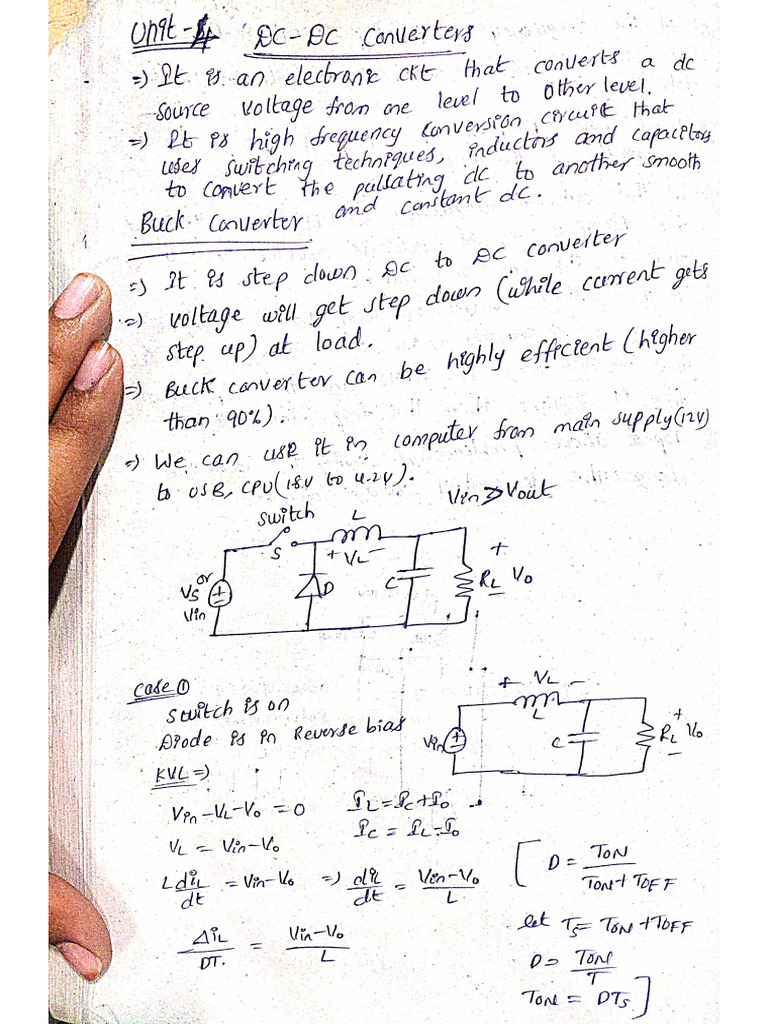 Unit-4 DC-DC Converters
=) It is an electronic ckt that converts a dc
source voltage from one level to other level.
=) It is high frequency conversion circuit that
uses switching techniques, inductors and capacitors
to convert the pulsating dc to another smooth
and constant dc.
Buck Converter
=) It is step down DC to DC converter
=) voltage will get step down (while current gets
step up) at load.
=) Buck converter can be highly efficient (higher
than 90%).
=) We can use it in computer from main supply(12V)
to USB, CPU(1.8V to 4.2V).
Vin>Vout
switch L
S + VL -
or
Vs
Vin
D C RL + Vo
Case 1
Switch is on
Diode is in Reverse bias
+ VL -
L
Vin C RL + Vo -
KVL =)
Vin-VL-Vo = 0 IL=Ic+Io
VL = Vin-Vo Ic = IL-Io
L diL/dt = Vin-Vo =) diL/dt = Vin-Vo/L
ΔiL/DT. = Vin-Vo/L
[ D = TON/TON+TOFF
let Ts= TON+TOFF
D= TON/T
TON = DTs ]